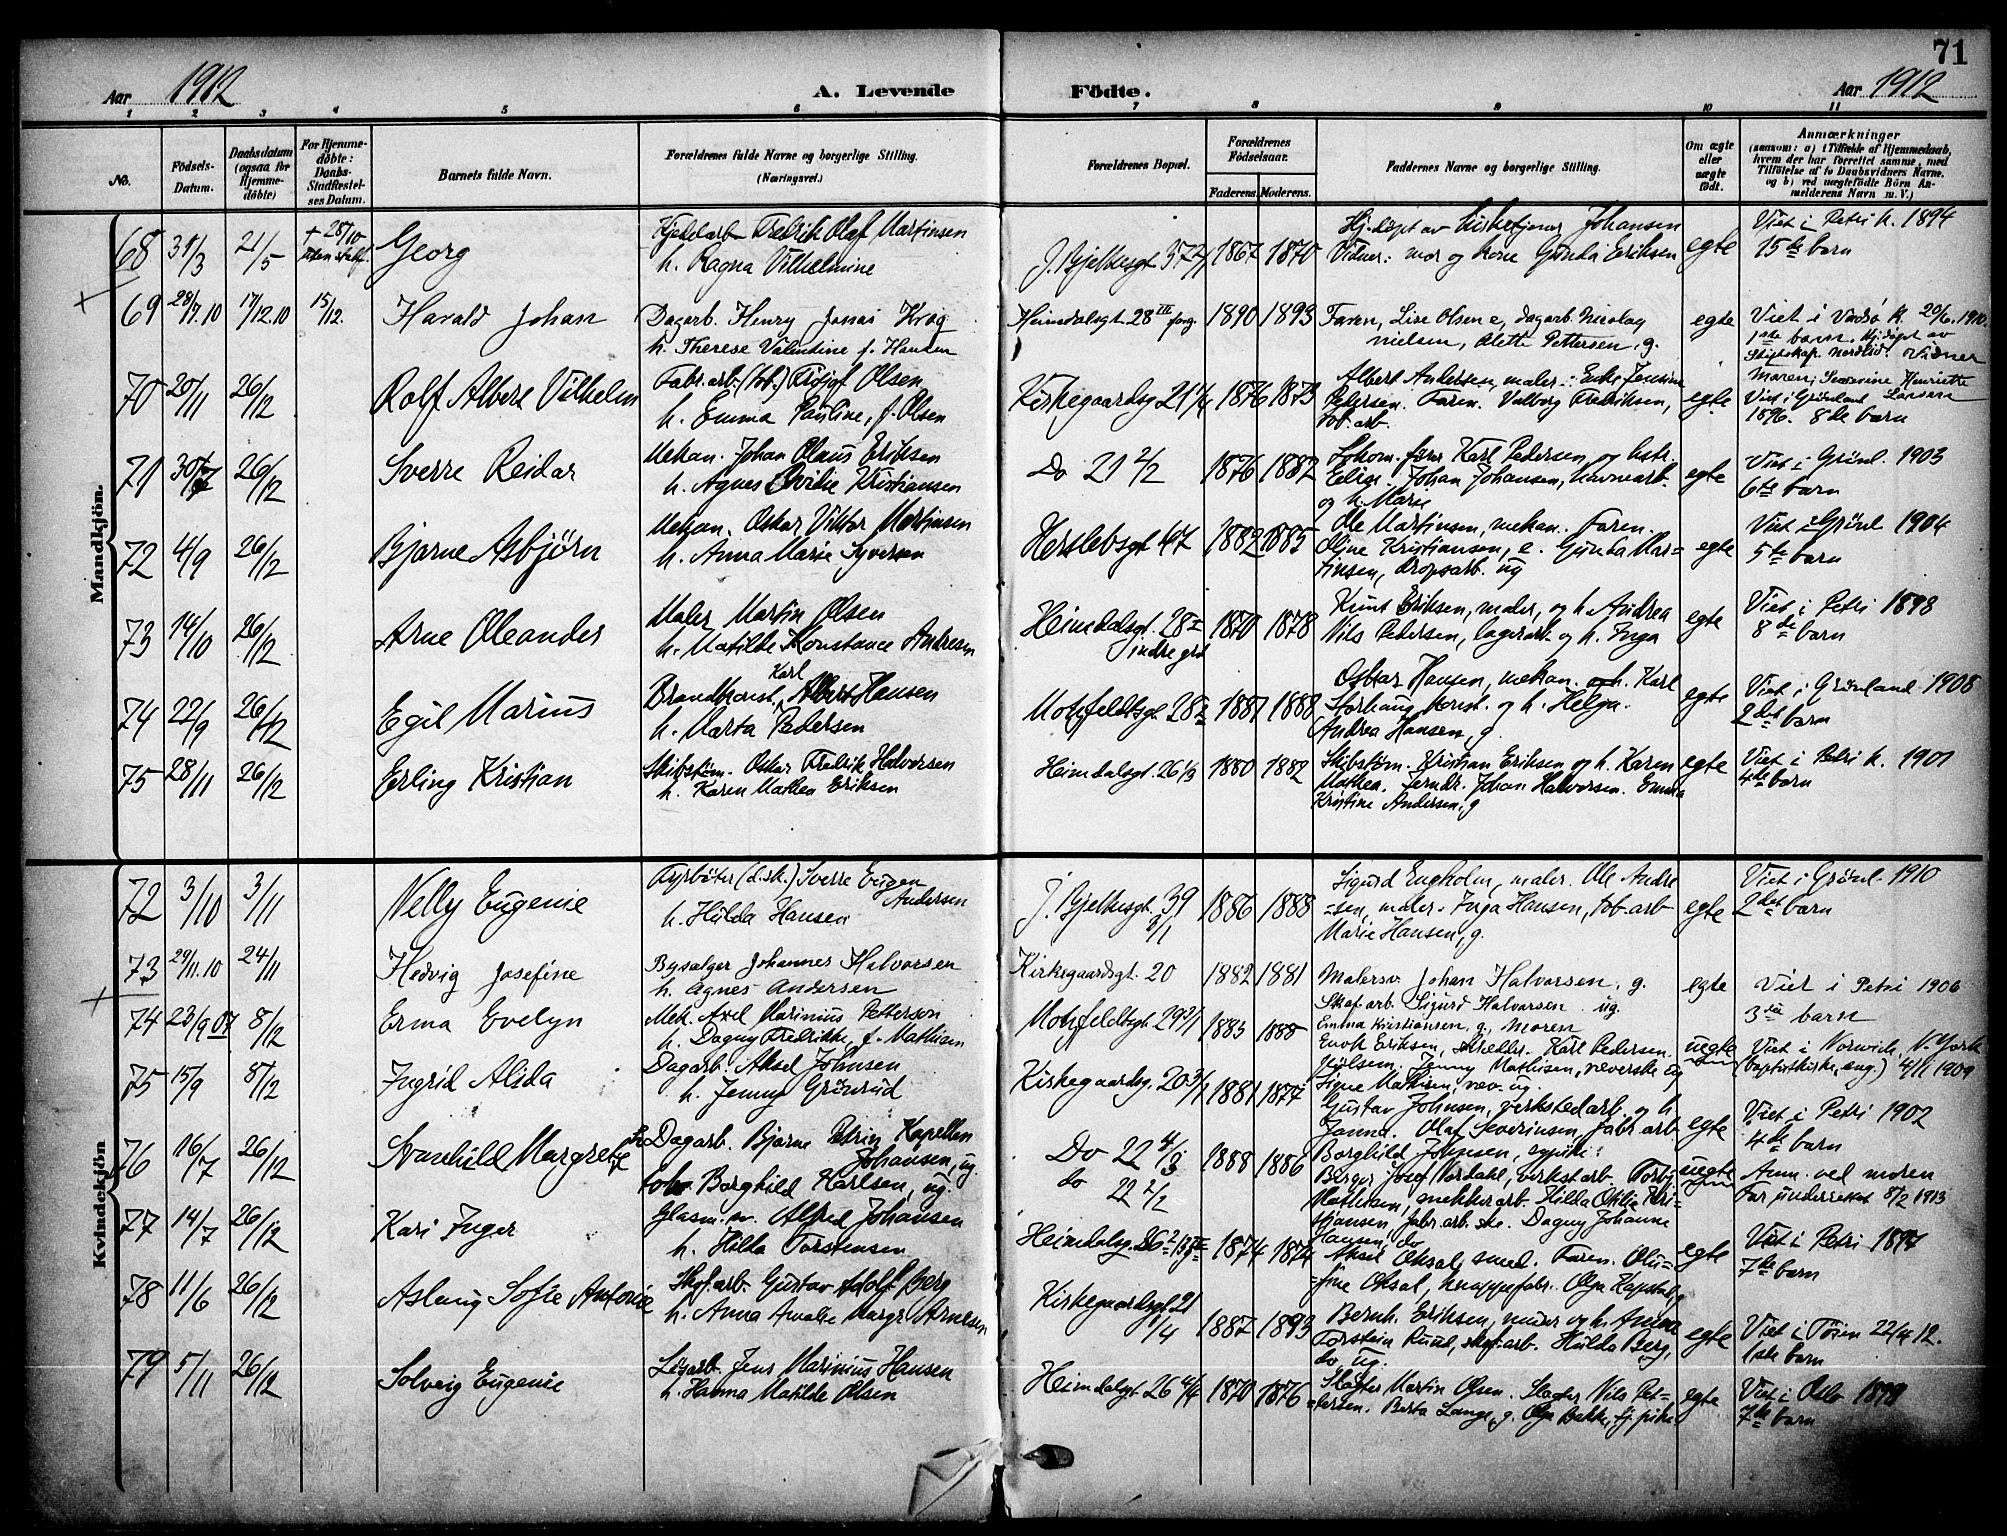 71
Aar 1912 A. Levende Födte. Aar 1912
1 2 3 4 5 6 7 8 9 10 11
No. Födsels-Datum. Daabsdatum (ogsaa for Hjemme-döbte) For Hjemme-döbte: Daabs-Stadfæstel-ses Datum. Barnets fulde Navn. Forældrenes fulde Navne og borgerlige Stilling. (Næringsvei.) Forældrenes Bopæl. Forældrenes Födselsaar. Faderens. Moderens. Faddernes Navne og borgerlige Stilling. Om ægte eller uægte födt. Anmærkninger (saasom: a) i Tilfælde af Hjemmedaab, hvem der har forrettet samme, med Tilföielse af to Daabsvidners Navne, og b) ved uægtefödte Börn Anmelderens Navn m. V.)
Mandkjön.
68 31/3 21/5 + 28/10 uten stadf. Georg
Kjedelarb Fredrik Olaf Martinsen
h. Ragna Vilhelmine
J. Bjelkesgt 37 2/1 1867 1870
Hj.døpt av Johansen
Vidner: mor og kone Gunda Eriksen
egte
Viet i Petri k. 1894
15de barn
69 28/7.10 17/12.10 15/12. Harald Johan
Dagarb. Henry Jonas Krog
h. Therese Valentine f. Hansen
Heimdalsgt 28 III forg. 1890 1893
Faren, Lise Olsen e, dagarb. Nicolay
Nielsen, Alette Pettersen, g.
egte
Viet i Vadsø k. 20/6.1910.
1ste barn. Hj.døpt av
Stiftskap. Nordlid. Vidner
Moren, Severine Henriette
Larsen
70 20/11 26/12 Rolf Albert Vilhelm
Fabr.arb. (tob.) Olsen
h. Emma Pauline, f. Olsen
Kirkegaardsg 21 1/4 1876 1873
Albert Andersen, maler. Enke Jensine
Petersen. Faren. Valborg Fredriksen,
tob.arb.
egte
Viet i Grønland
1896. 8de barn
71 30/7 26/12 Sverre Reidar
Mekan. Johan Olaus Eriksen
h. Agnes Kristiansen
Do 21 2/2 1876 1882
Karl Pedersen og hstr.
Johan Johansen, havnearb.
og h. Marie
egte
Viet i Grønl. 1903
6te barn
72 4/9 26/12 Bjarne Asbjörn
Mekan. Oskar Viktor Martinsen
h. Anna Marie Syversen
Herslebsgt 47 1882 1885
Ole Martinsen, mekan. Faren.
Oline Kristiansen, e. Gunda Mar=
tinsen, dropsarb. ug
egte
Viet i Grønl 1904
5te barn
73 14/10 26/12 Arne Oleander
Maler Martin Olsen
h. Matilde Konstance Andresen
Heimdalsgt. 28 II
indre grd
1870 1878
Knut Eriksen, maler, og h. Andrea
Nils Pedersen, lagerarb. og h. Inga
egte
Viet i Petri 1898
8de barn
74 22/9 26/12 Egil Marius
Karl
Brandkonst. Albert Hansen
h. Marta Pedersen
Motzfeldtsgt 28 1887 1888
Oskar Hansen, mekan. Karl
Storhaug konst. og h. Helga.
Andrea Hansen, g.
egte
Viet i Grønland 1908
2det barn
75 28/11 26/12 Erling Kristian
Skibstöm. Oskar Fredrik Halvorsen
h. Karen Mathea Eriksen
Heimdalsgt. 26 1880 1882
Skibstøm. Kristian Eriksen og h. Karen
Mathea. Jerndr. Johan Halvorsen. Emma
Kristine Andersen, g
egte
Viet i Petri k. 1901
4de barn
Kvindekjön
72 3/10 3/11 Nelly Eugenie
Fyrbøter (d.sk.) Sverre Eugen
Andersen
h. Hilda Hansen
J. Bjelkesgt. 39 1886 1888
Sigurd Engholm, maler. Ole Andre
=sen, maler. Inga Hansen, tob.arb
Marie Hansen, g.
egte
Viet i Grønl. 1910
2det barn
73 29/11.10 24/11 Hedvig Josefine
Bysælger Johannes Halvorsen
h. Agnes Andersen
Kirkegaardsgt. 20 1882 1881
Malersv. Johan Halvorsen, g.
Skofarb. Sigurd Halvorsen ug.
Emma Kristiansen, g., Moren
egte
Viet i Petri 1906
3die barn
74 23/9 07 8/12 Erma Evelyn
Mek. Axel Marinius Petterson
h. Dagny Fredrikke, f. Mathisen
Motzfeldtsgt 29 2/1 1883 1885
Enok Eriksen, Karl Pedersen.
Jenny Mathisen, væverske ug
Signe Mathisen, væv. ug.
uegte
Viet i Norwich, N. York
(baptistkirke, eng.) 4/1 1909
75 15/9 8/12 Ingrid Alida
Dagarb. Aksel Johnsen
h. Jenny Grönrud
Kirkegaardsg. 20 3/1 1881 1874
Gustav Johnsen, verkstedarb. og h
Janna. Olaf Severinsen, fabr.arb
Borghild Johnsen, sypike.
egte
Viet i Petri 1902
4de barn
76 16/7 26/12 Svanhild Margrethe
Dagarb. Bjarne Petrin Kapellen
Johansen, ug.
tob. Borghild Karlsen, ug.
Do 22 4/3
do 22 2/2
1888 1886
Birger Josef Nordahl, virkst.arb.
Mathisen, mekker.arb. Hilda Otilie Kri=
stjansen, fabr.arb. Dagny Johanne
Hansen, do
uegte
Anm. ved moren
Far underrettet 8/2 1913
77 14/7 26/12 Kari Inger
Glasm.sv. Alfred Johansen
h. Hilda Torstensen
Heimdalsg. 26 1874 1874
Aksel Oksal, smed. Faren. Olu=
=fine Oksal, knappefabr. Olga
egte
Viet i Petri 1897
7de barn
78 11/6 26/12 Aslaug Sofie Antonie
Skof.arb. Gustav Adolf Berg
h. Anna Amalie Margr. Arnesen
Kirkegaardsgt 21
1/4
1887 1893
Bernh. Eriksen, murer og h. Anna
Torstein Ruud, skof.arb. Hulda Berg,
do, ug.
egte
Viet i Tøien 22/4 12.
1ste barn
79 5/11 26/12 Solveig Eugenie
Jens Marinius Hansen
h. Hanna Matilde Olsen
Heimdalsgt 26 4/4 1870 1876
Slagter Martin Olsen. Slagter Nils Pet=
=tersen. Berta Lange, g. Olga Bakke, tj.pike
egte
Viet i Oslo 1898
7de barn